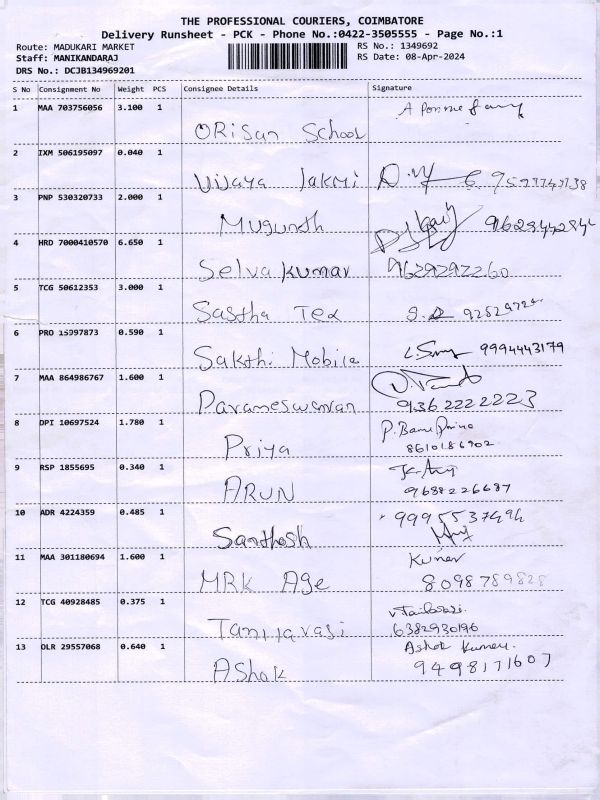 THE PROFESSIONAL COURIERS, COIMBATORE
Delivery Runsheet - PCK - Phone No.:0422-3505555 - Page No.:1
Route: MADUKARI MARKET RS No.: 1349692
Staff: MANIKANDARAJ RS Date: 08-Apr-2024
DRS No.: DCJB134969201
S No Consignment No Weight PCS Consignee Details Signature
1 MAA 703756056 3.100 1
ORiSun School
2 IXM 506195097 0.040 1
Vijaya lakmi
3 PNP 530320733 2.000 1
Mugunth
4 HRD 7000410570 6.650 1
Selva kumar 9629297260
5 TCG 50612353 3.000 1
Sastha Tex
6 PRO 15997873 0.590 1
Sakthi Mobile 9994443179
7 MAA 864986767 1.600 1
Parameswaran 9362222223
8 DPI 10697524 1.780 1
Priya 8610186902
9 RSP 1855695 0.340 1
ARUN 9688226687
10 ADR 4224359 0.485 1
Santhosh
11 MAA 301180694 1.600 1 Kumar
MRK Age 8098789828
12 TCG 40928485 0.375 1
6382930196
13 OLR 29557068 0.640 1 Ashok Kumar
AShok 9498171607